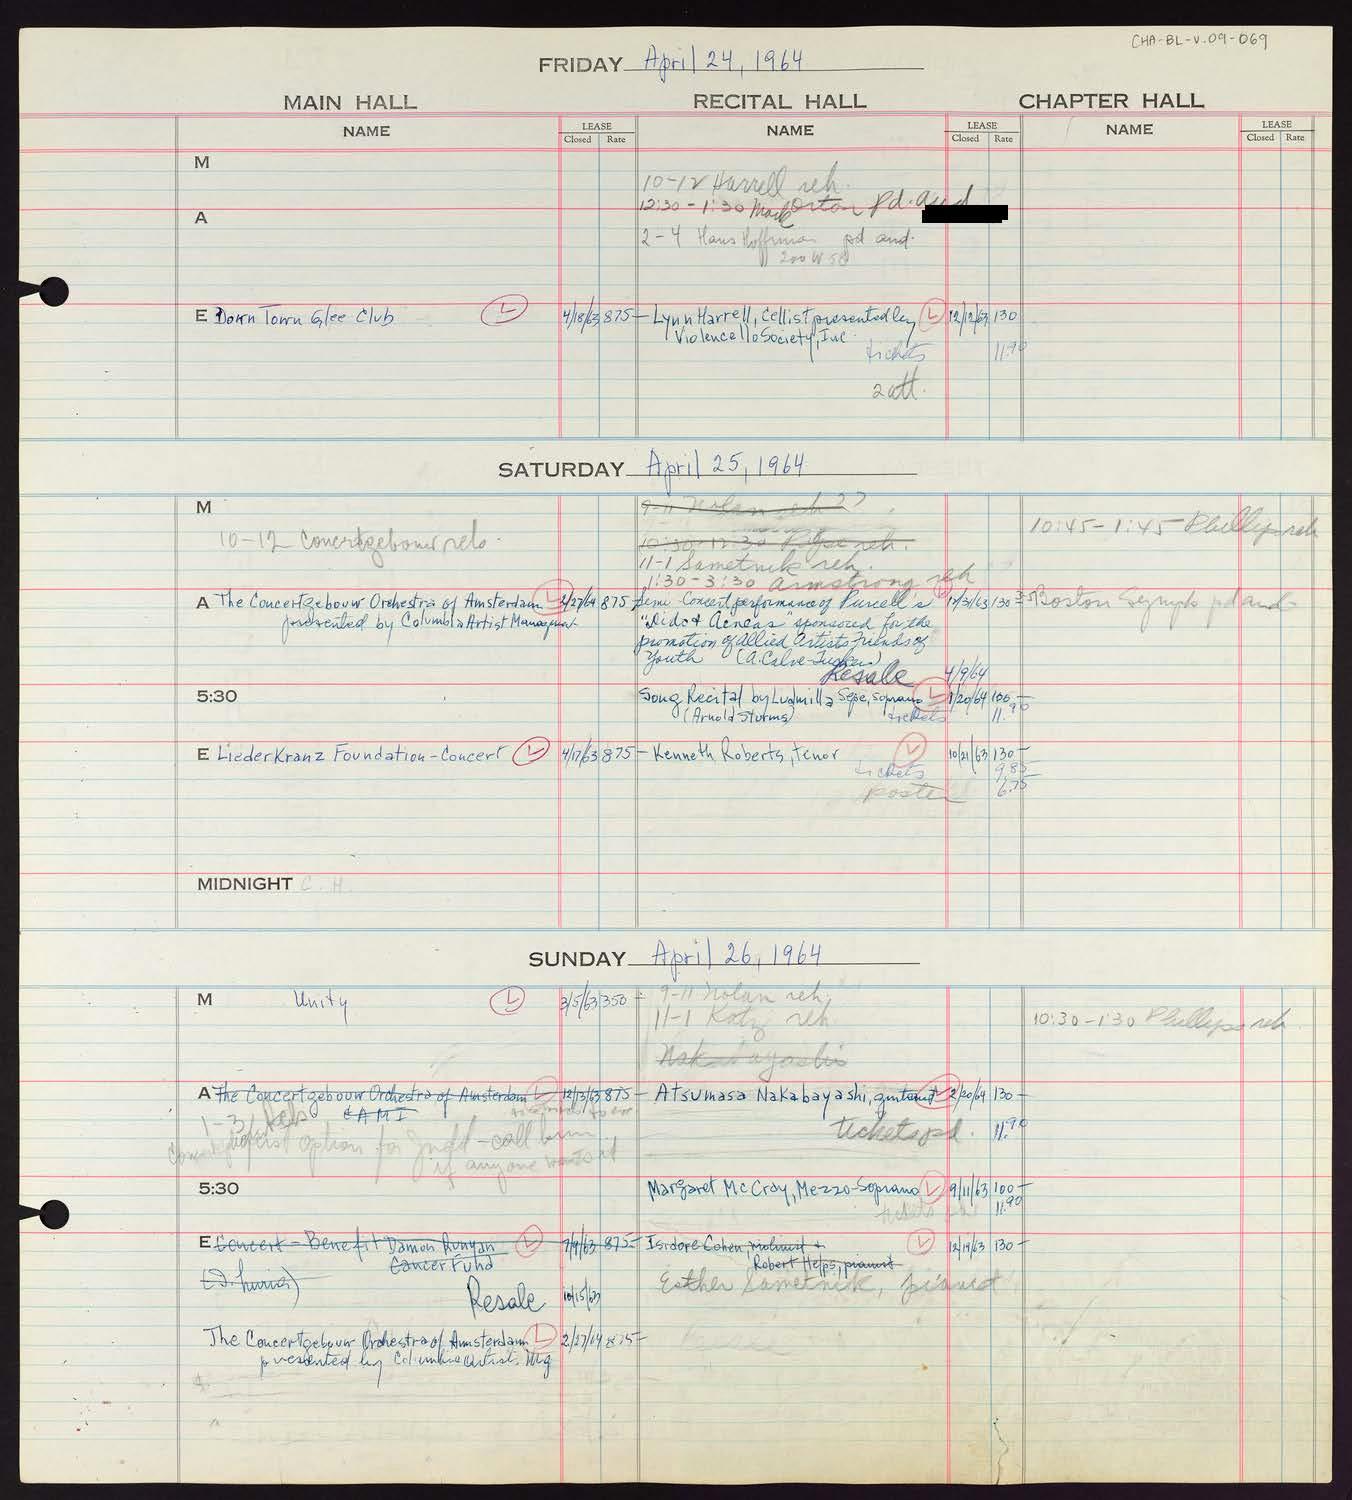 CHA-BL-V.09-069
FRIDAY April 24, 1964
MAIN HALL RECITAL HALL CHAPTER HALL
NAME LEASE Closed Rate NAME LEASE Closed Rate NAME LEASE Closed Rate
M
10-12 Harrell reh.
12:30 - 1:30 Orton Pd. aud
A
2-4 Hans Hoffman pd aud.
200 W 58
E Down Town Glee Club 4/18/63 875- Lynn Harrell, Cellist presented by 12/12/63 130
Violencello Society, Inc.
tickets 11.90
2 att.
SATURDAY April 25, 1964
M
9-11 Nolan reh ??
10:45-1:45 Phillips reh
10-12 Concertgebouw reh.
10:30-12:30 reh.
11-1 Sametnik reh.
1:30-3:30 Armstrong reh
A The Concertgebouw Orchestra of Amsterdam 2/27/64 875 Semi-Concert performance of Purcell's 12/31/63 130 3-5 Boston Symph pd aud
presented by Columbia Artist Managemt
"Dido & Aeneas" sponsored for the
promotion of Allied Artists Friends of
Youth (A. Calve-
Resale 4/9/64
5:30 Song Recital by Ludmilla Sepe, soprano 1/20/64 100-
(Arnold Sturms) tickets 11.90
E LiederKranz Foundation-Concert 4/17/63 875- Kenneth Roberts, tenor 10/21/63 130-
tickets 9.85
poster 6.75
MIDNIGHT C. H.
SUNDAY April 26, 1964
M Unity 3/5/63 350- 9-11 Nolan reh.
11-1 Katz reh
10:30-1:30 Phillips reh
Nakabayashi
A The Concertgebouw Orchestra of Amsterdam 12/13/63 875- Atsumasa Nakabayashi, guitarist 2/20/64 130-
CAMI
1-3
tickets pd. 11.90
first option for -call
if anyone wants it
5:30 Margaret McCray, Mezzo-Soprano 9/11/63 100-
tickets 11.90
E Concert - Benefit Damon Runyan 7/9/63 875- Isidore Cohen, violinist + 12/19/63 130-
Cancer Fund
Robert Helps, pianist
Esther Sametnik, pianist
Resale 10/15/63
The Concertgebouw Orchestra of Amsterdam 2/27/64 875-
presented by Columbia Artist. Mg